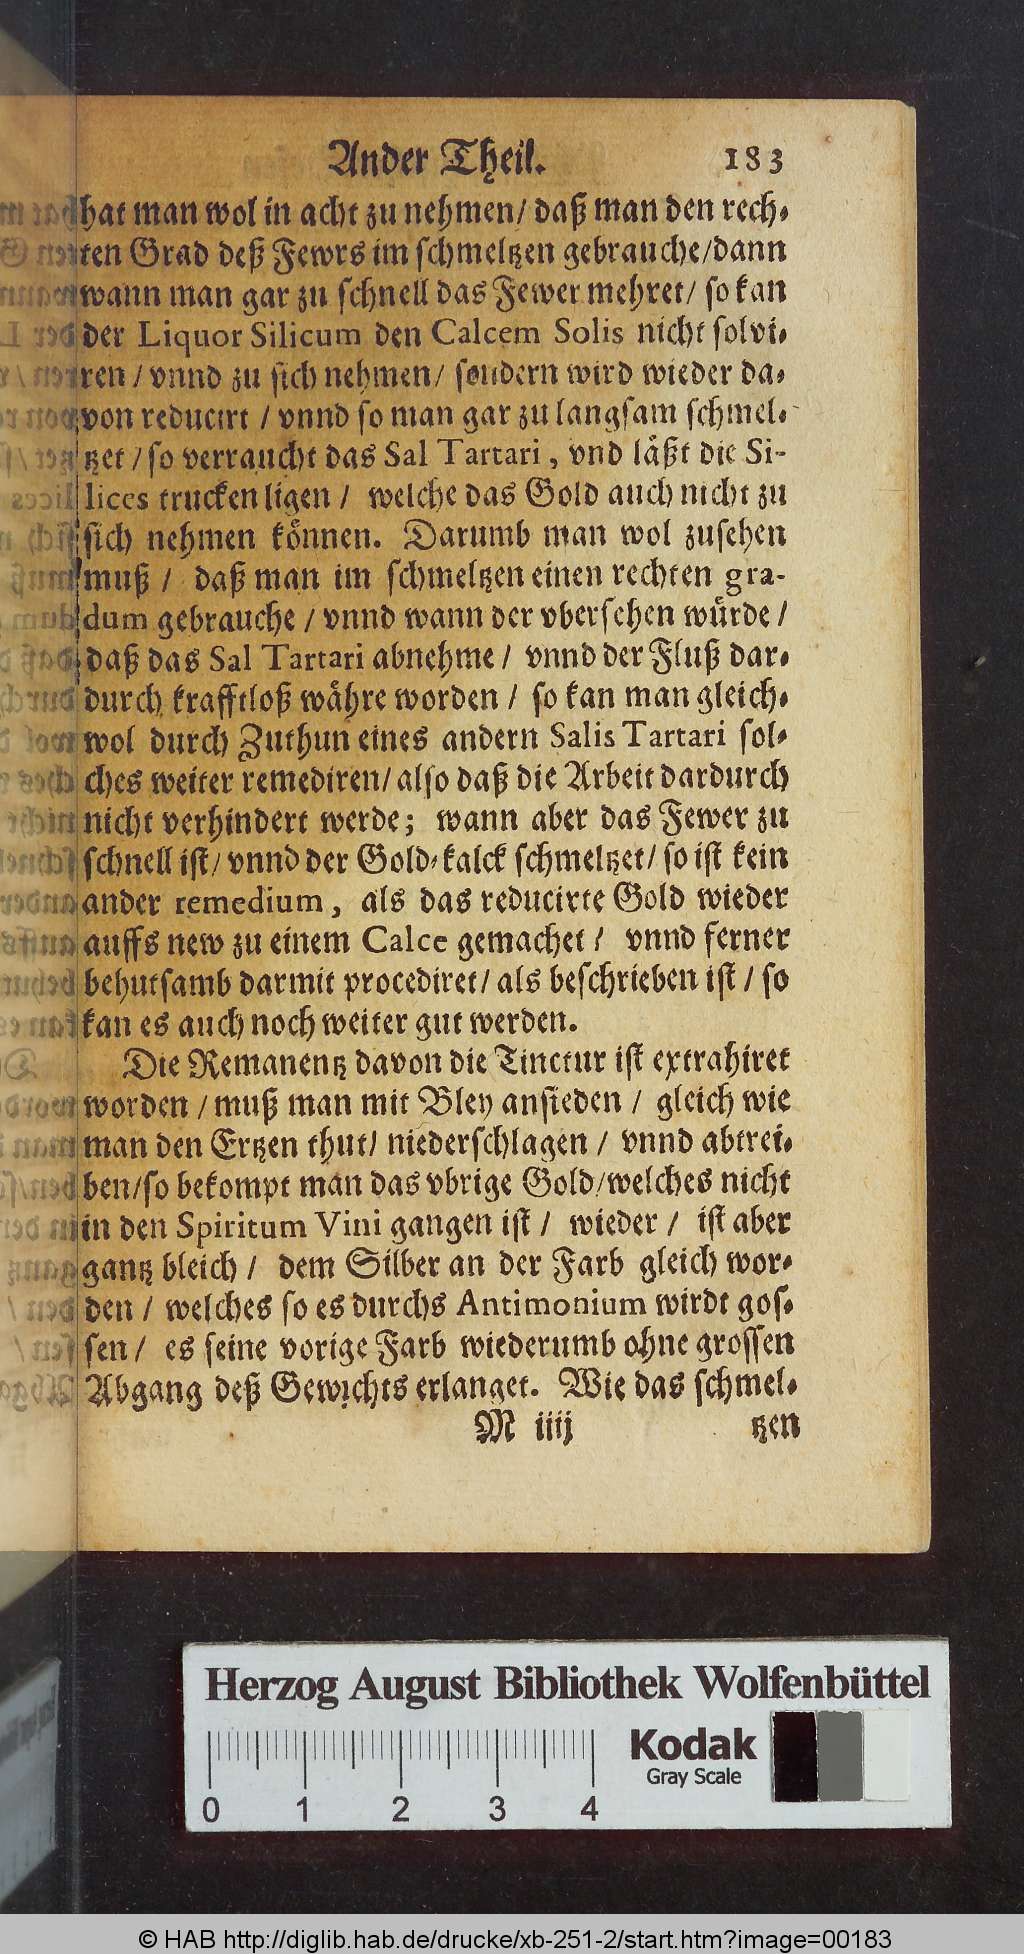 Ander Theil. 183
hat man wol in acht zu nehmen/ daß man den rech-
ten Grad deß Fewrs im schmeltzen gebrauche/dann
wann man gar zu schnell das Fewer mehret/ so kan
der Liquor Silicum den Calcem Solis nicht solvi-
ren / vnnd zu sich nehmen/ sondern wird wieder da-
von reducirt / vnnd so man gar zu langsam schmel-
tzet / so verraucht das Sal Tartari, vnd läßt die Si-
lices trucken ligen / welche das Gold auch nicht zu
sich nehmen können. Darumb man wol zusehen
muß / daß man im schmeltzen einen rechten gra-
dum gebrauche / vnnd wann der vbersehen würde /
daß das Sal Tartari abnehme / vnnd der Fluß dar-
durch krafftloß währe worden / so kan man gleich-
wol durch Zuthun eines andern Salis Tartari sol-
ches weiter remediren/ also daß die Arbeit dardurch
nicht verhindert werde; wann aber das Fewer zu
schnell ist/ vnnd der Gold-kalck schmeltzet/ so ist kein
ander remedium, als das reducirte Gold wieder
auffs new zu einem Calce gemachet / vnnd ferner
behutsamb darmit procediret/ als beschrieben ist / so
kan es auch noch weiter gut werden.
Die Remanentz davon die Tinctur ist extrahiret
worden / muß man mit Bley ansieden / gleich wie
man den Ertzen thut/ niederschlagen / vnnd abtrei-
ben/so bekompt man das vbrige Gold/welches nicht
in den Spiritum Vini gangen ist / wieder / ist aber
gantz bleich / dem Silber an der Farb gleich wor-
den / welches so es durchs Antimonium wirdt gos-
sen / es seine vorige Farb wiederumb ohne grossen
Abgang deß Gewichts erlanget. Wie das schmel-
M iiij tzen
Herzog August Bibliothek Wolfenbüttel
Kodak
Gray Scale
0 1 2 3 4
© HAB http://diglib.hab.de/drucke/xb-251-2/start.htm?image=00183